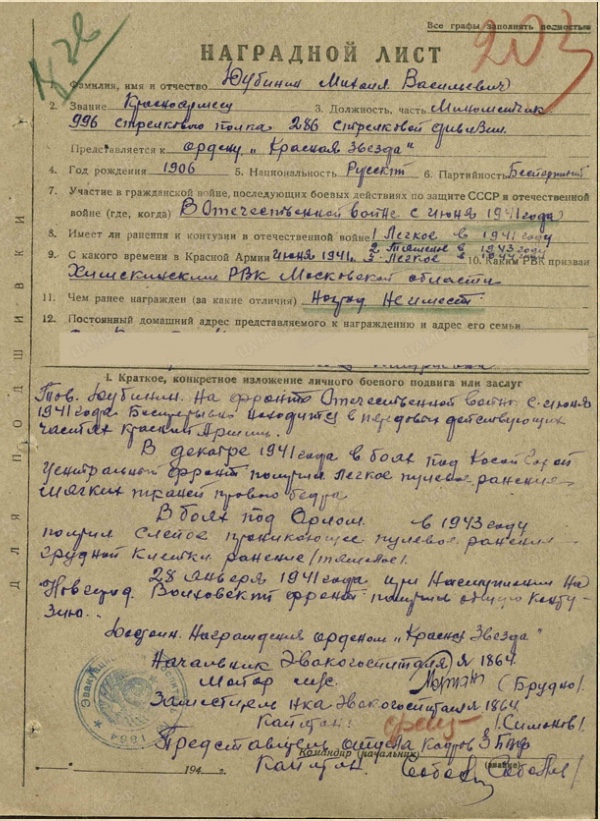 Все графы заполнять полностью
203
НАГРАДНОЙ ЛИСТ
Фамилия, имя и отчество Михаил Васильевич
2. Звание Красноармеец 3. Должность, часть Минометчик
996 стрелкового полка 286 стрелковой дивизии.
Представляется к ордену „Красная Звезда"
4. Год рождения 1906 5. Национальность Русский 6. Партийность Беспартийный
7. Участие в гражданской войне, последующих боевых действиях по защите СССР и отечественной
войне (где, когда) В Отечественной войне с июня 1941 года
8. Имеет ли ранения и контузии в отечественной войне 1 Легкое в 1941 году
2 тяжелое в 1943 году
9. С какого времени в Красной Армии июня 1941. 3-Легкое в 1944 году 10. Каким РВК призван
Химкинским РВК Московской области
11. Чем ранее награжден (за какие отличия) Наград Не имеет
12. Постоянный домашний адрес представляемого к награждению и адрес его семьи
Для подшивки
I. Краткое, конкретное изложение личного боевого подвига или заслуг
Тов. на фронте Отечественной войны с июня
1941 года. Беспрерывно находится в передовых действующих
частях Красной Армии.
В декабре 1941 года в боях под Косой Горой
Центральный фронт получил легкое пулевое ранение
мягких тканей правого бедра
В боях под Орлом. в 1943 году
получил слепое проникающее пулевое ранение
грудной клетки ранение /тяжелое/.
28 января 1941 года при наступлении на
Новгород. Волховский фронт получил общую конту-
зию.
Достоин. Награждения орденом „Красная Звезда"
Начальник Эвакогоспиталя № 1864.
Майор м/с. (Брудно/.
Заместитель н-ка Эвакогоспиталя 1864
Капитан: /.Симонов/.
Представитель отдела кадров
Командир (начальник)
Капитан.
194 г.
(звание)
1864